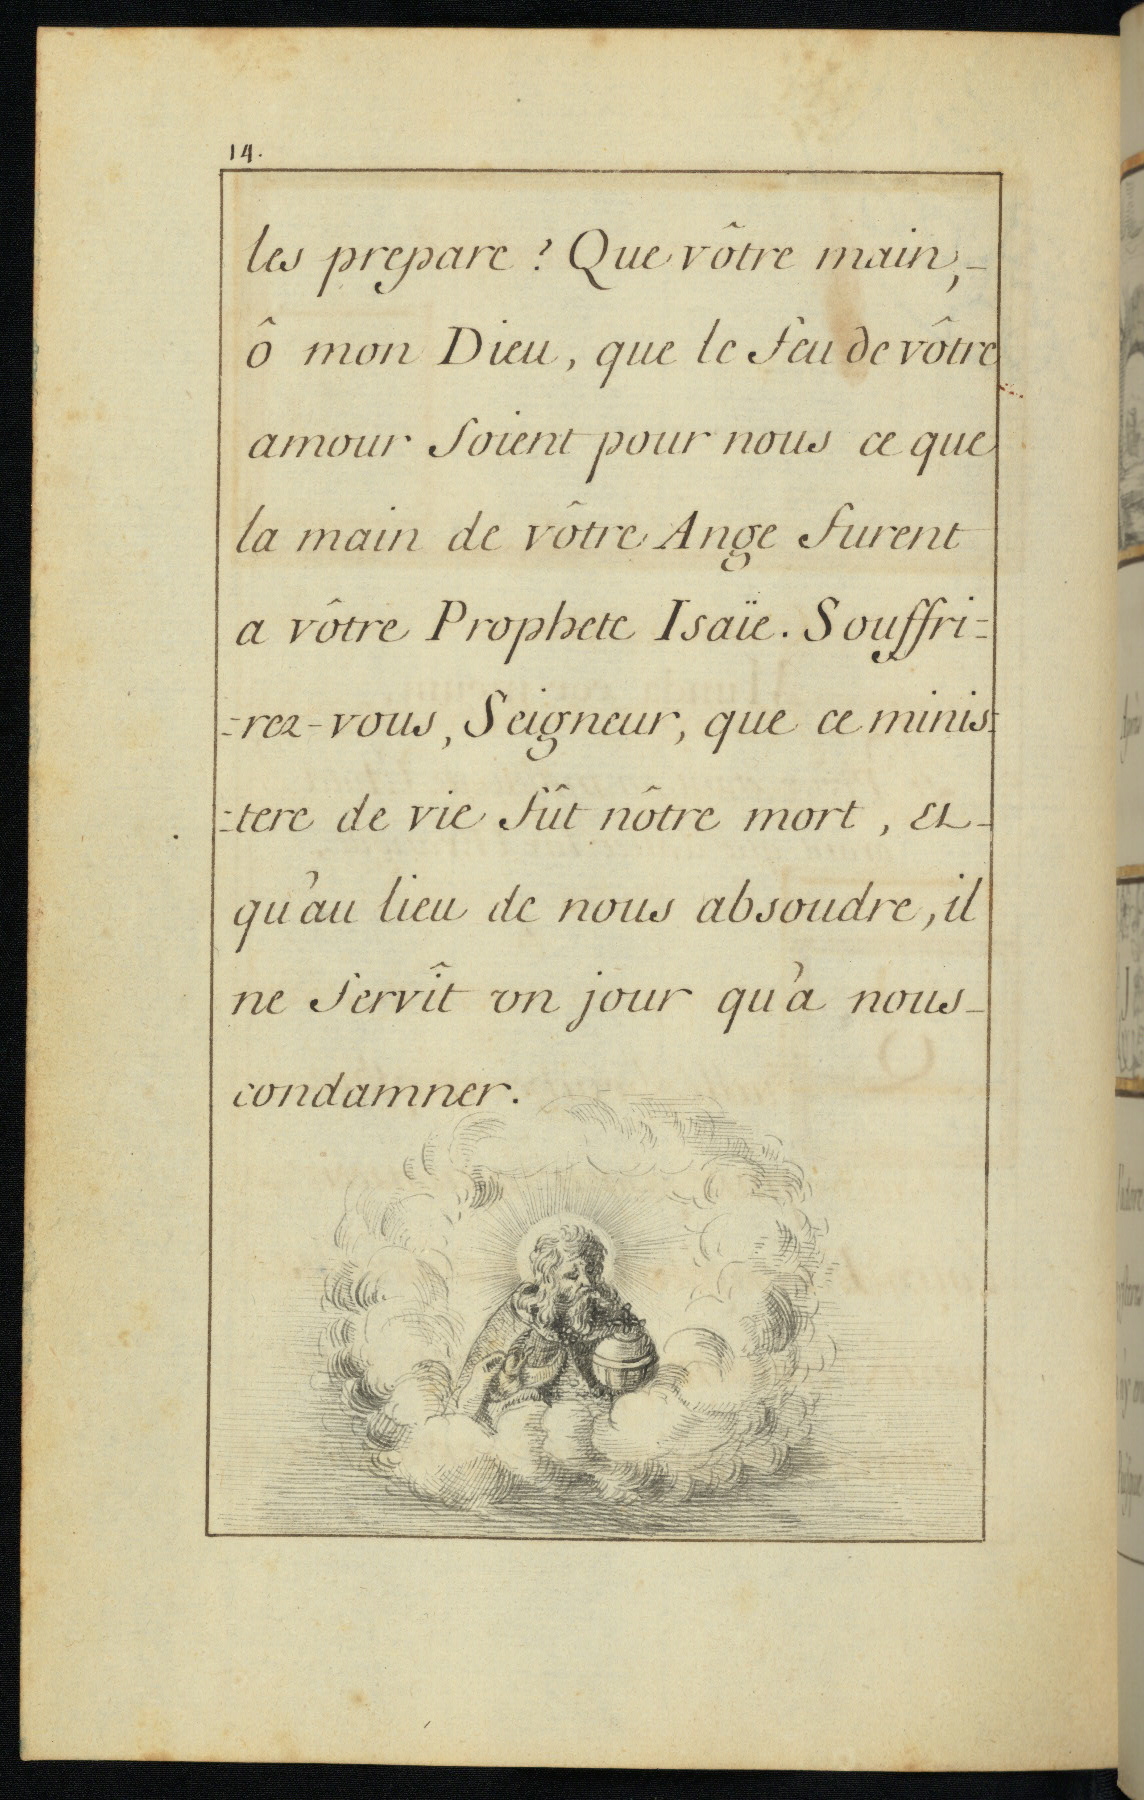 14.
les prepare ? Que vôtre main,-
ô mon Dieu, que le feu de vôtre
amour soient pour nous ce que
la main de vôtre Ange furent
a vôtre Prophete Isaïe. Souffri=
=rez-vous, Seigneur, que ce minis=
=tere de vie fût nôtre mort, et-
qu'au lieu de nous absoudre, il
ne servît vn jour qu'à nous-
condamner.